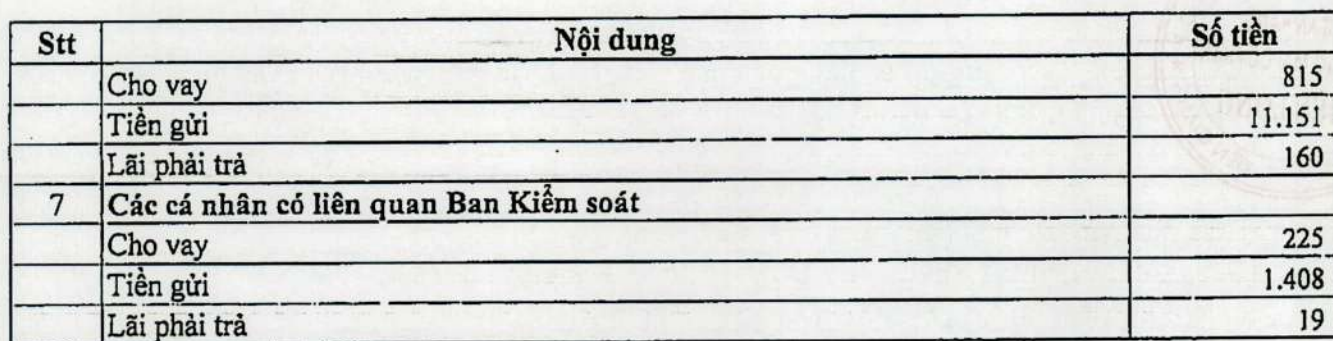 Stt Nội dung Số tiền
Cho vay 815
Tiền gửi 11.151
Lãi phải trả 160
7 Các cá nhân có liên quan Ban Kiểm soát
Cho vay 225
Tiền gửi 1.408
Lãi phải trả 19